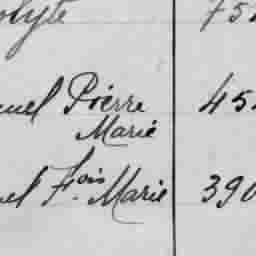 olyte 75
uel Pierre 45
Marie
el Fois Marie 390